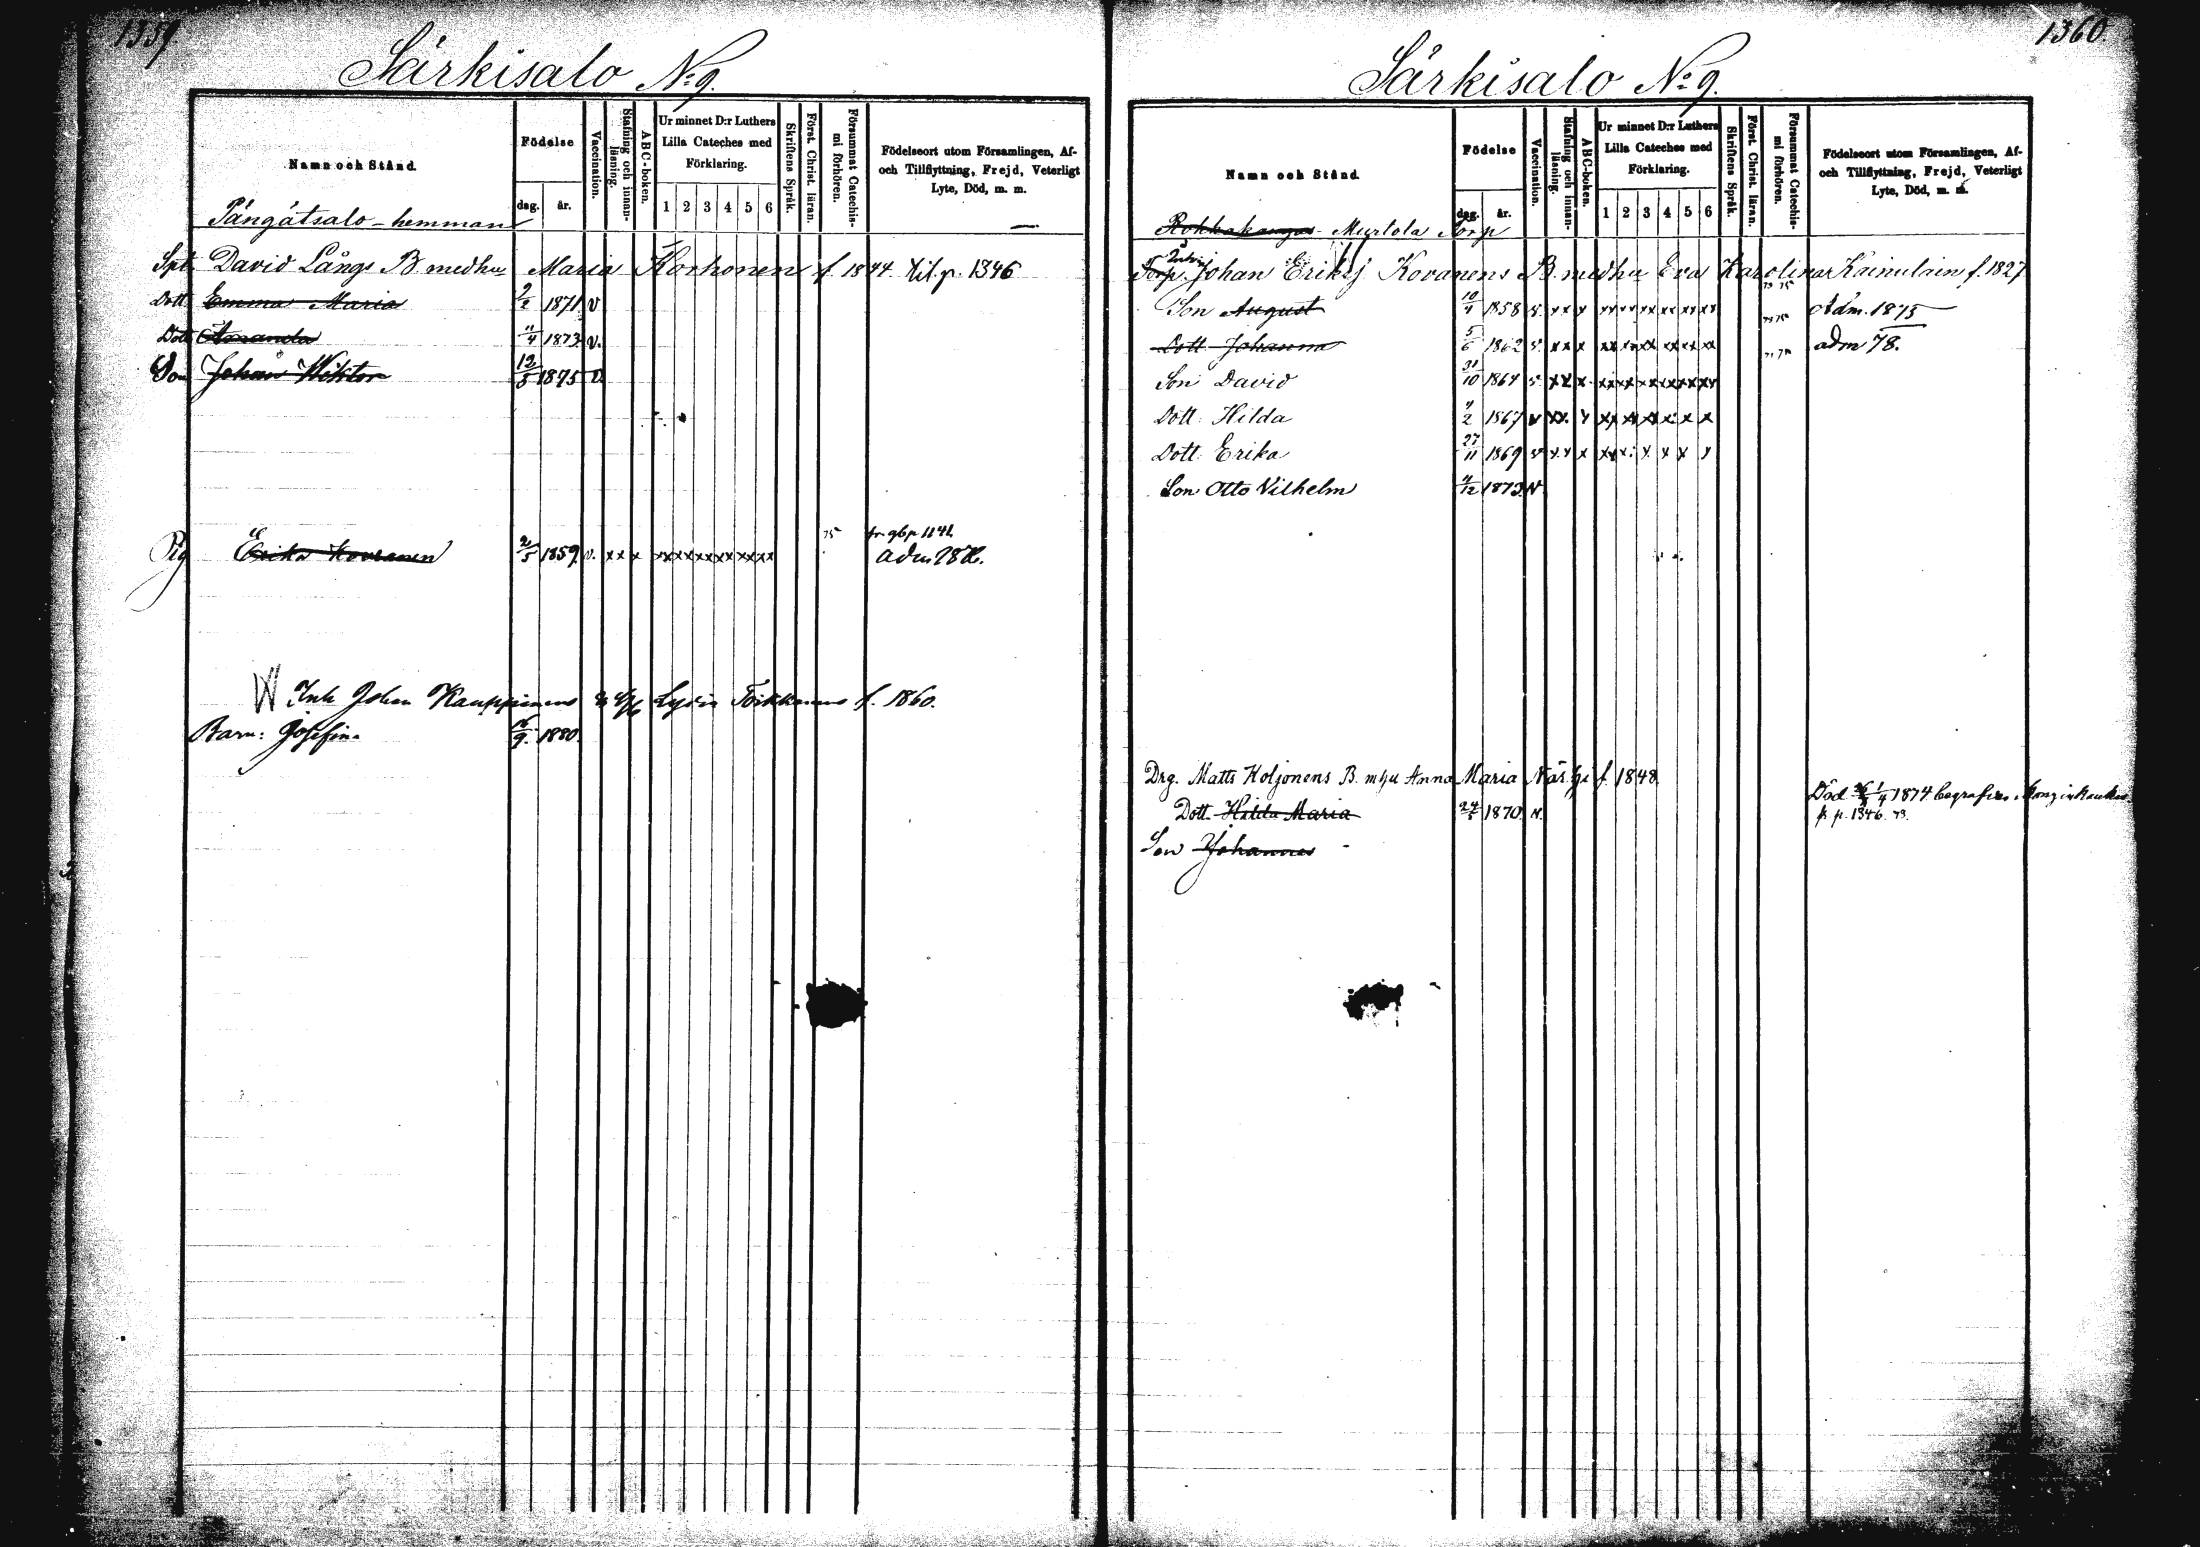 1359.
Särkisalo N:o 9.
Namn och Stånd.
Födelse
dag.
år.
Vaccination.
Stafning och innan-
läsning.
ABC-boken.
Ur minnet D:r Luthers
Lilla Cateches med
Förklaring.
1 2 3 4 5 6
Skriftens Språk.
Först. Christ. läran.
Försummat Catechis-
mi förhören.
Födelseort utom Församlingen, Af-
och Tillflyttning, Frejd, Veterligt
Lyte, Död, m. m.
Pångåtsalo - hemman
Spt. David Långs B medhu Maria Korhonen f. 1844 til p. 1346
Dott. Emma Maria 2/2 1871 v
Dott Amanda 11/4 1873 v.
Son Johan Wiktor 12/5 1875 v.
Pig Erika Kovanen 2/5 1859. v. xx x xx xx xx xx xx xx 75 fr. p. 1141.
adm
Inh Johan Kauppinens Lydia Toikkanens f. 1860.
Barn: Josefina 16/9. 1880.
1360
Särkisalo N:o 9.
Namn och Stånd.
Födelse
dag.
år.
Vaccination.
Stafning och innan-
läsning.
ABC-boken.
Ur minnet D:r Luthers
Lilla Cateches med
Förklaring.
1 2 3 4 5 6
Skriftens Språk.
Först. Christ. läran.
Försummat Catechis-
mi förhören.
Födelseort utom Församlingen, Af-
och Tillflyttning, Frejd, Veterligt
Lyte, Död, m. m.
Rokkakangas - Murtola Torp
Torp. Johan Eriksj Kovanens B. medhu Eva Karolina Kainulain f. 1827
Son August 10/4 1858 v. xx x xx xx xx xx xx xx 73 75 Adm. 1875
Dott Johanna 5/6 1862 v. xx x xx xx xx xx xx xx adm 78.
Son David 31/10 1864 v. xx x xx xx xx xx xx xx
Dott. Hilda 4/2 1867 v xx. x xx xx xx x x x
Dott. Erika 27/11 1869 v x x x xx x x x x x
Son Otto Vilhelm 4/12 1873 v.
Drg. Matts Koljonens B. mhu Anna Maria Närhi f. 1848.
Dott. Hilda Maria 24/5 1870 v. Död 1874 begrafven
p. 1346. 73.
Son Johannes